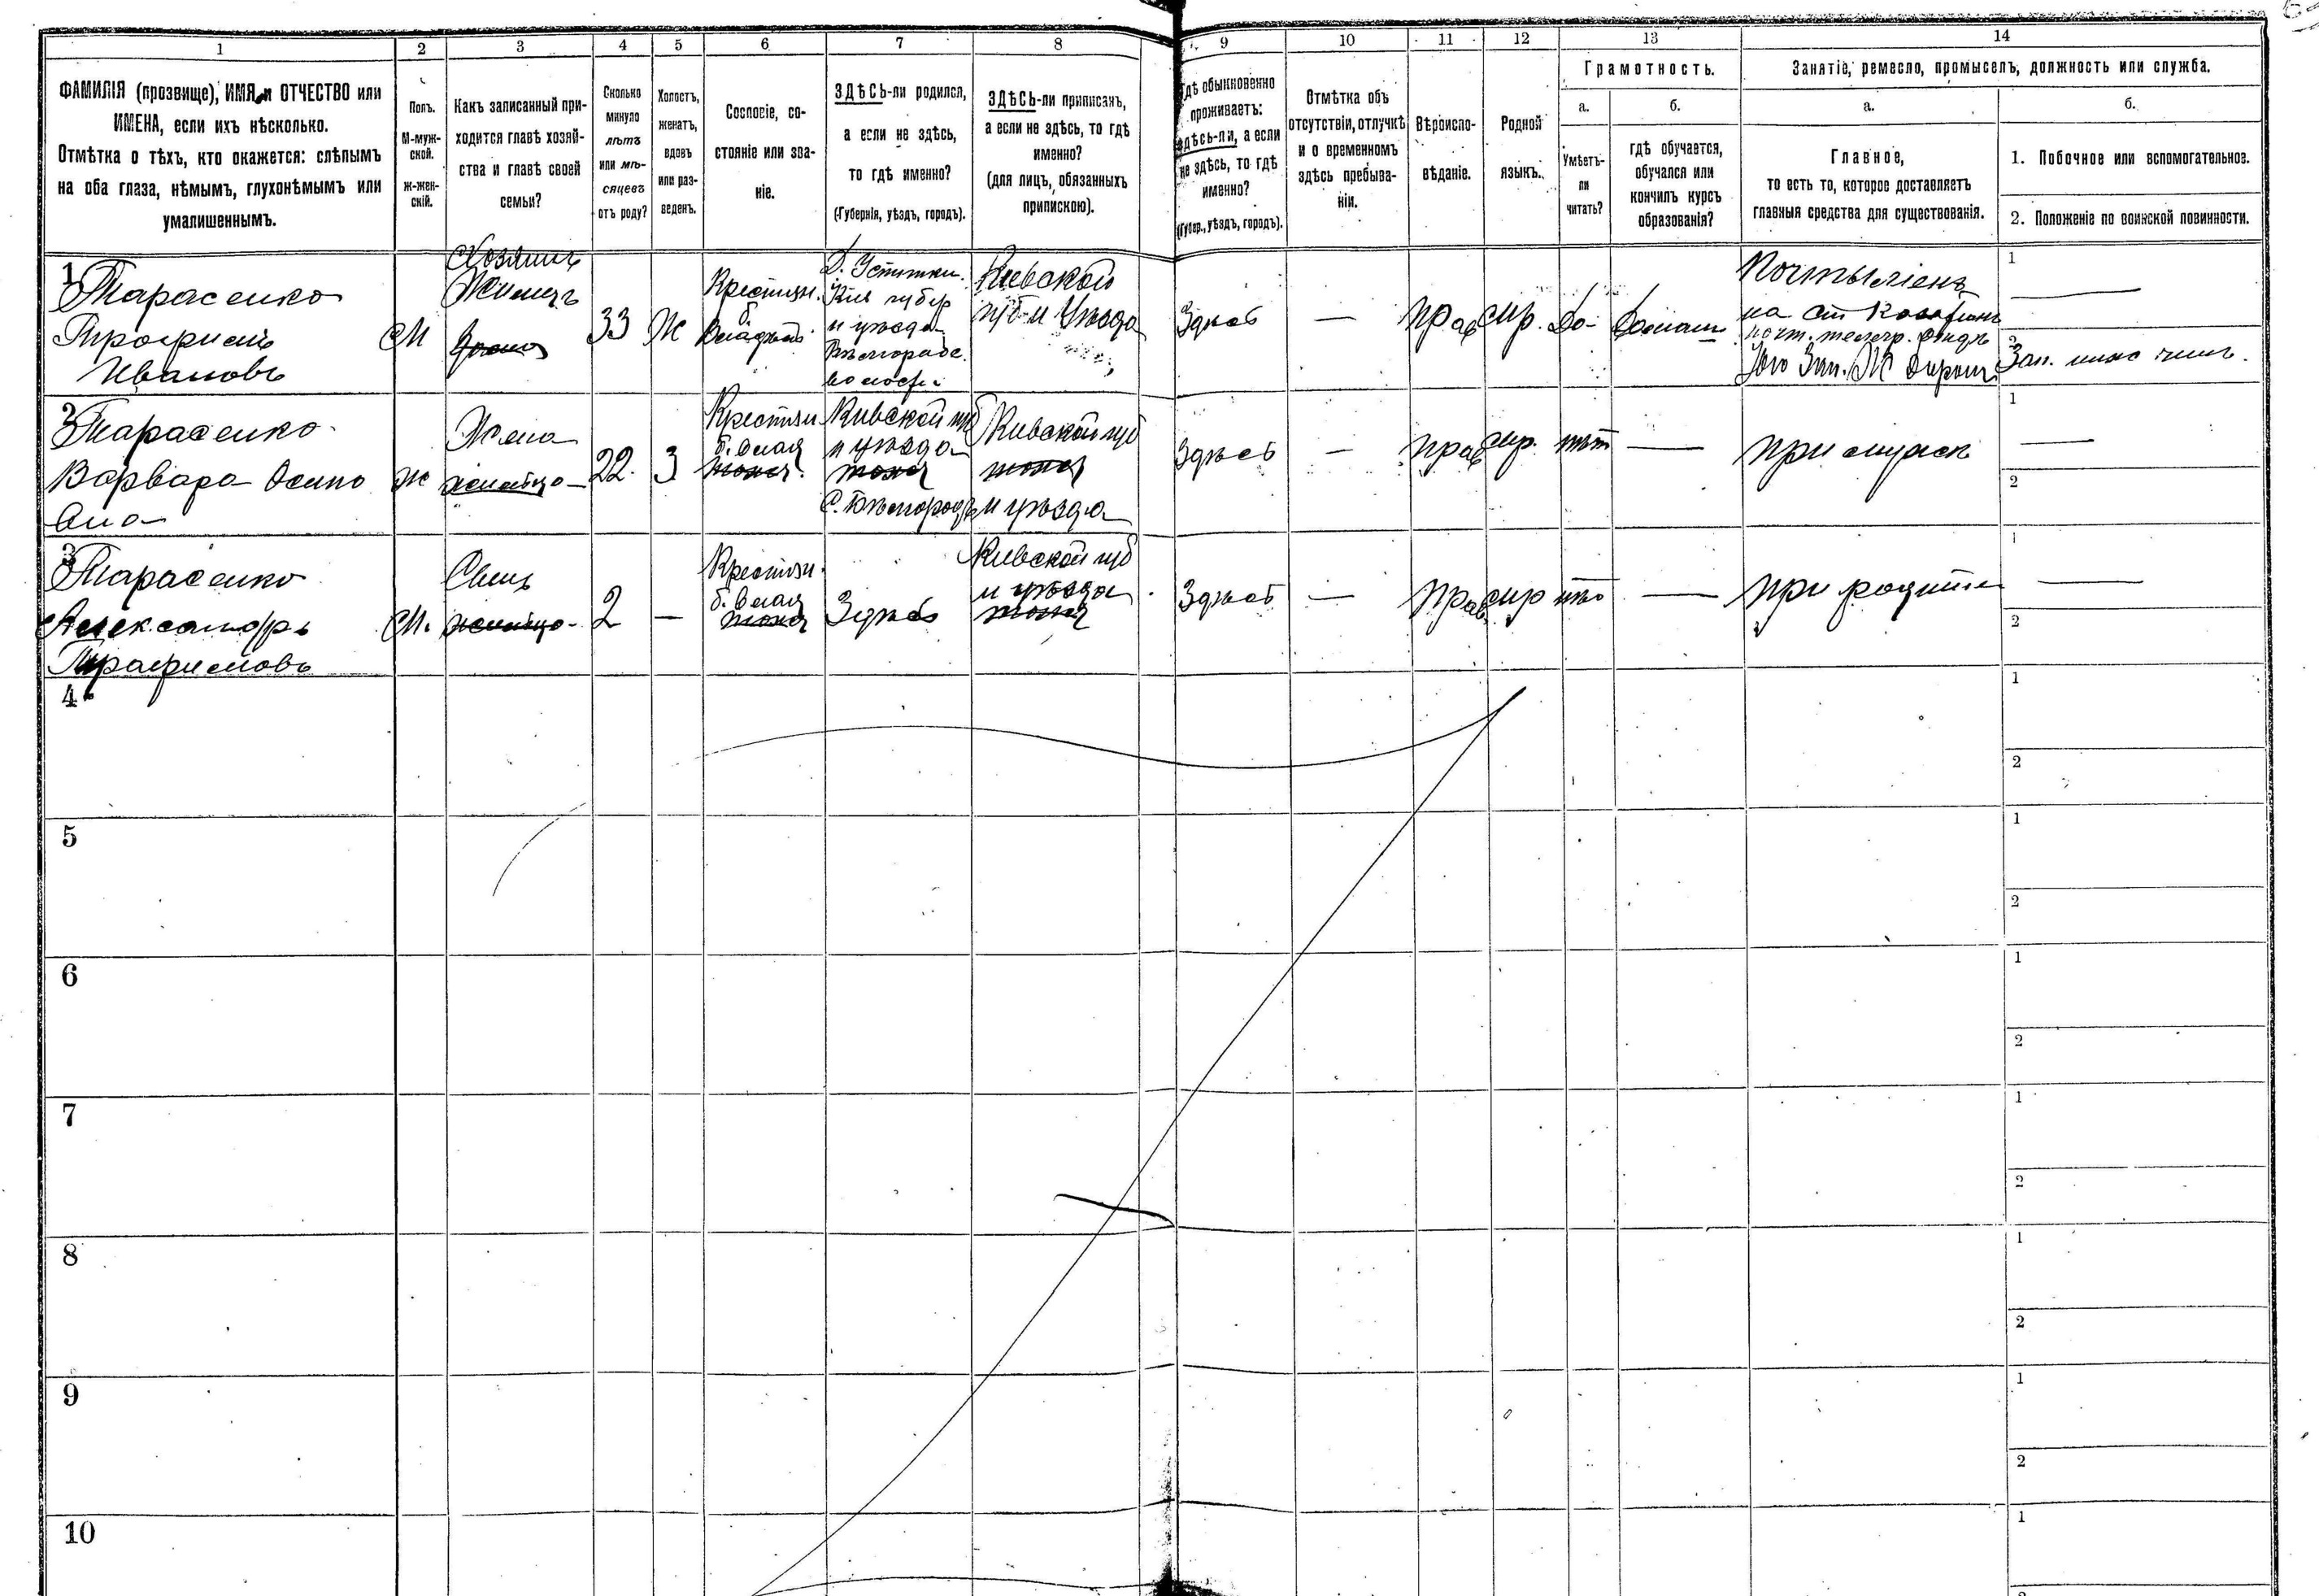 1 2 3 4 5 6 7 8 9 10 11 12 13 14
ФАМИЛІЯ (прозвище), ИМЯ и ОТЧЕСТВО или
ИМЕНА, если ихъ нѣсколько.
Отмѣтка о тѣхъ, кто окажется: слѣпымъ
на оба глаза, нѣмымъ, глухонѣмымъ или
умалишеннымъ.
Полъ.
М-муж-
ской.
Ж-жен-
скій.
Какъ записанный при-
ходится главѣ хозяй-
ства и главѣ своей
семьи?
Сколько
минуло
лѣтъ
или мѣ-
сяцевъ
отъ роду?
Холостъ,
женатъ,
вдовъ
или раз-
веденъ.
Сословіе, со-
стояніе или зва-
ніе.
ЗДѢСЬ-ли родился,
а если не здѣсь,
то гдѣ именно?
(Губернія, уѣздъ, городъ).
ЗДѢСЬ-ли приписанъ,
а если не здѣсь, то гдѣ
именно?
(для лицъ, обязанныхъ
припискою).
Гдѣ обыкновенно
проживаетъ:
здѣсь-ли, а если
не здѣсь, то гдѣ
именно?
(Губер., уѣздъ, городъ).
Отмѣтка объ
отсутствіи, отлучкѣ
и о временномъ
здѣсь пребыва-
ніи.
Вѣроиспо-
вѣданіе.
Родной
языкъ.
Грамотность.
а.
Умѣетъ-
ли
читать?
б.
гдѣ обучается,
обучался или
кончилъ курсъ
образованія?
Занятіе, ремесло, промыселъ, должность или служба.
а.
Главное,
то есть то, которое доставляетъ
главныя средства для существованія.
б.
1. Побочное или вспомогательное.
2. Положеніе по воинской повинности.
1
Тарасенко
Трофимъ
Ивановъ
М
Хозяинъ
Жилецъ
33
Ж
Крестьян.
б.
Владѣл.
Кіев губер
и уѣзда
волости
Киевской
губ и Уѣзда
Здѣсь
—
Прав
мр.
Да
домаш
Почтыліенъ
на ст Козатинъ
почт. телегр.
Юго Зап. Ж дороги
1
2
Зап. ниж чинъ.
2
Тарасенко
Варвара Осипо
вна
Ж
Жена
22.
З
Крестьян
б. влад
тоже
Кивской губ
и уѣзда
тоже
С. Бѣлгород
Кивской губ
тоже
и уѣзда
Здѣсь
—
Прав
мр.
нѣт
—
при мужѣ
1
2
3
Тарасенко
Александръ
Трафимовъ
М.
Сынъ
2
—
Крестьян.
б. влад
тоже
Здѣсь
Кивской губ
и уѣзда
тоже
Здѣсь
—
Прав
мр
нѣт
—
При родител
1
2
4
1
2
5
1
2
6
1
2
7
1
2
8
1
2
9
1
2
10
1